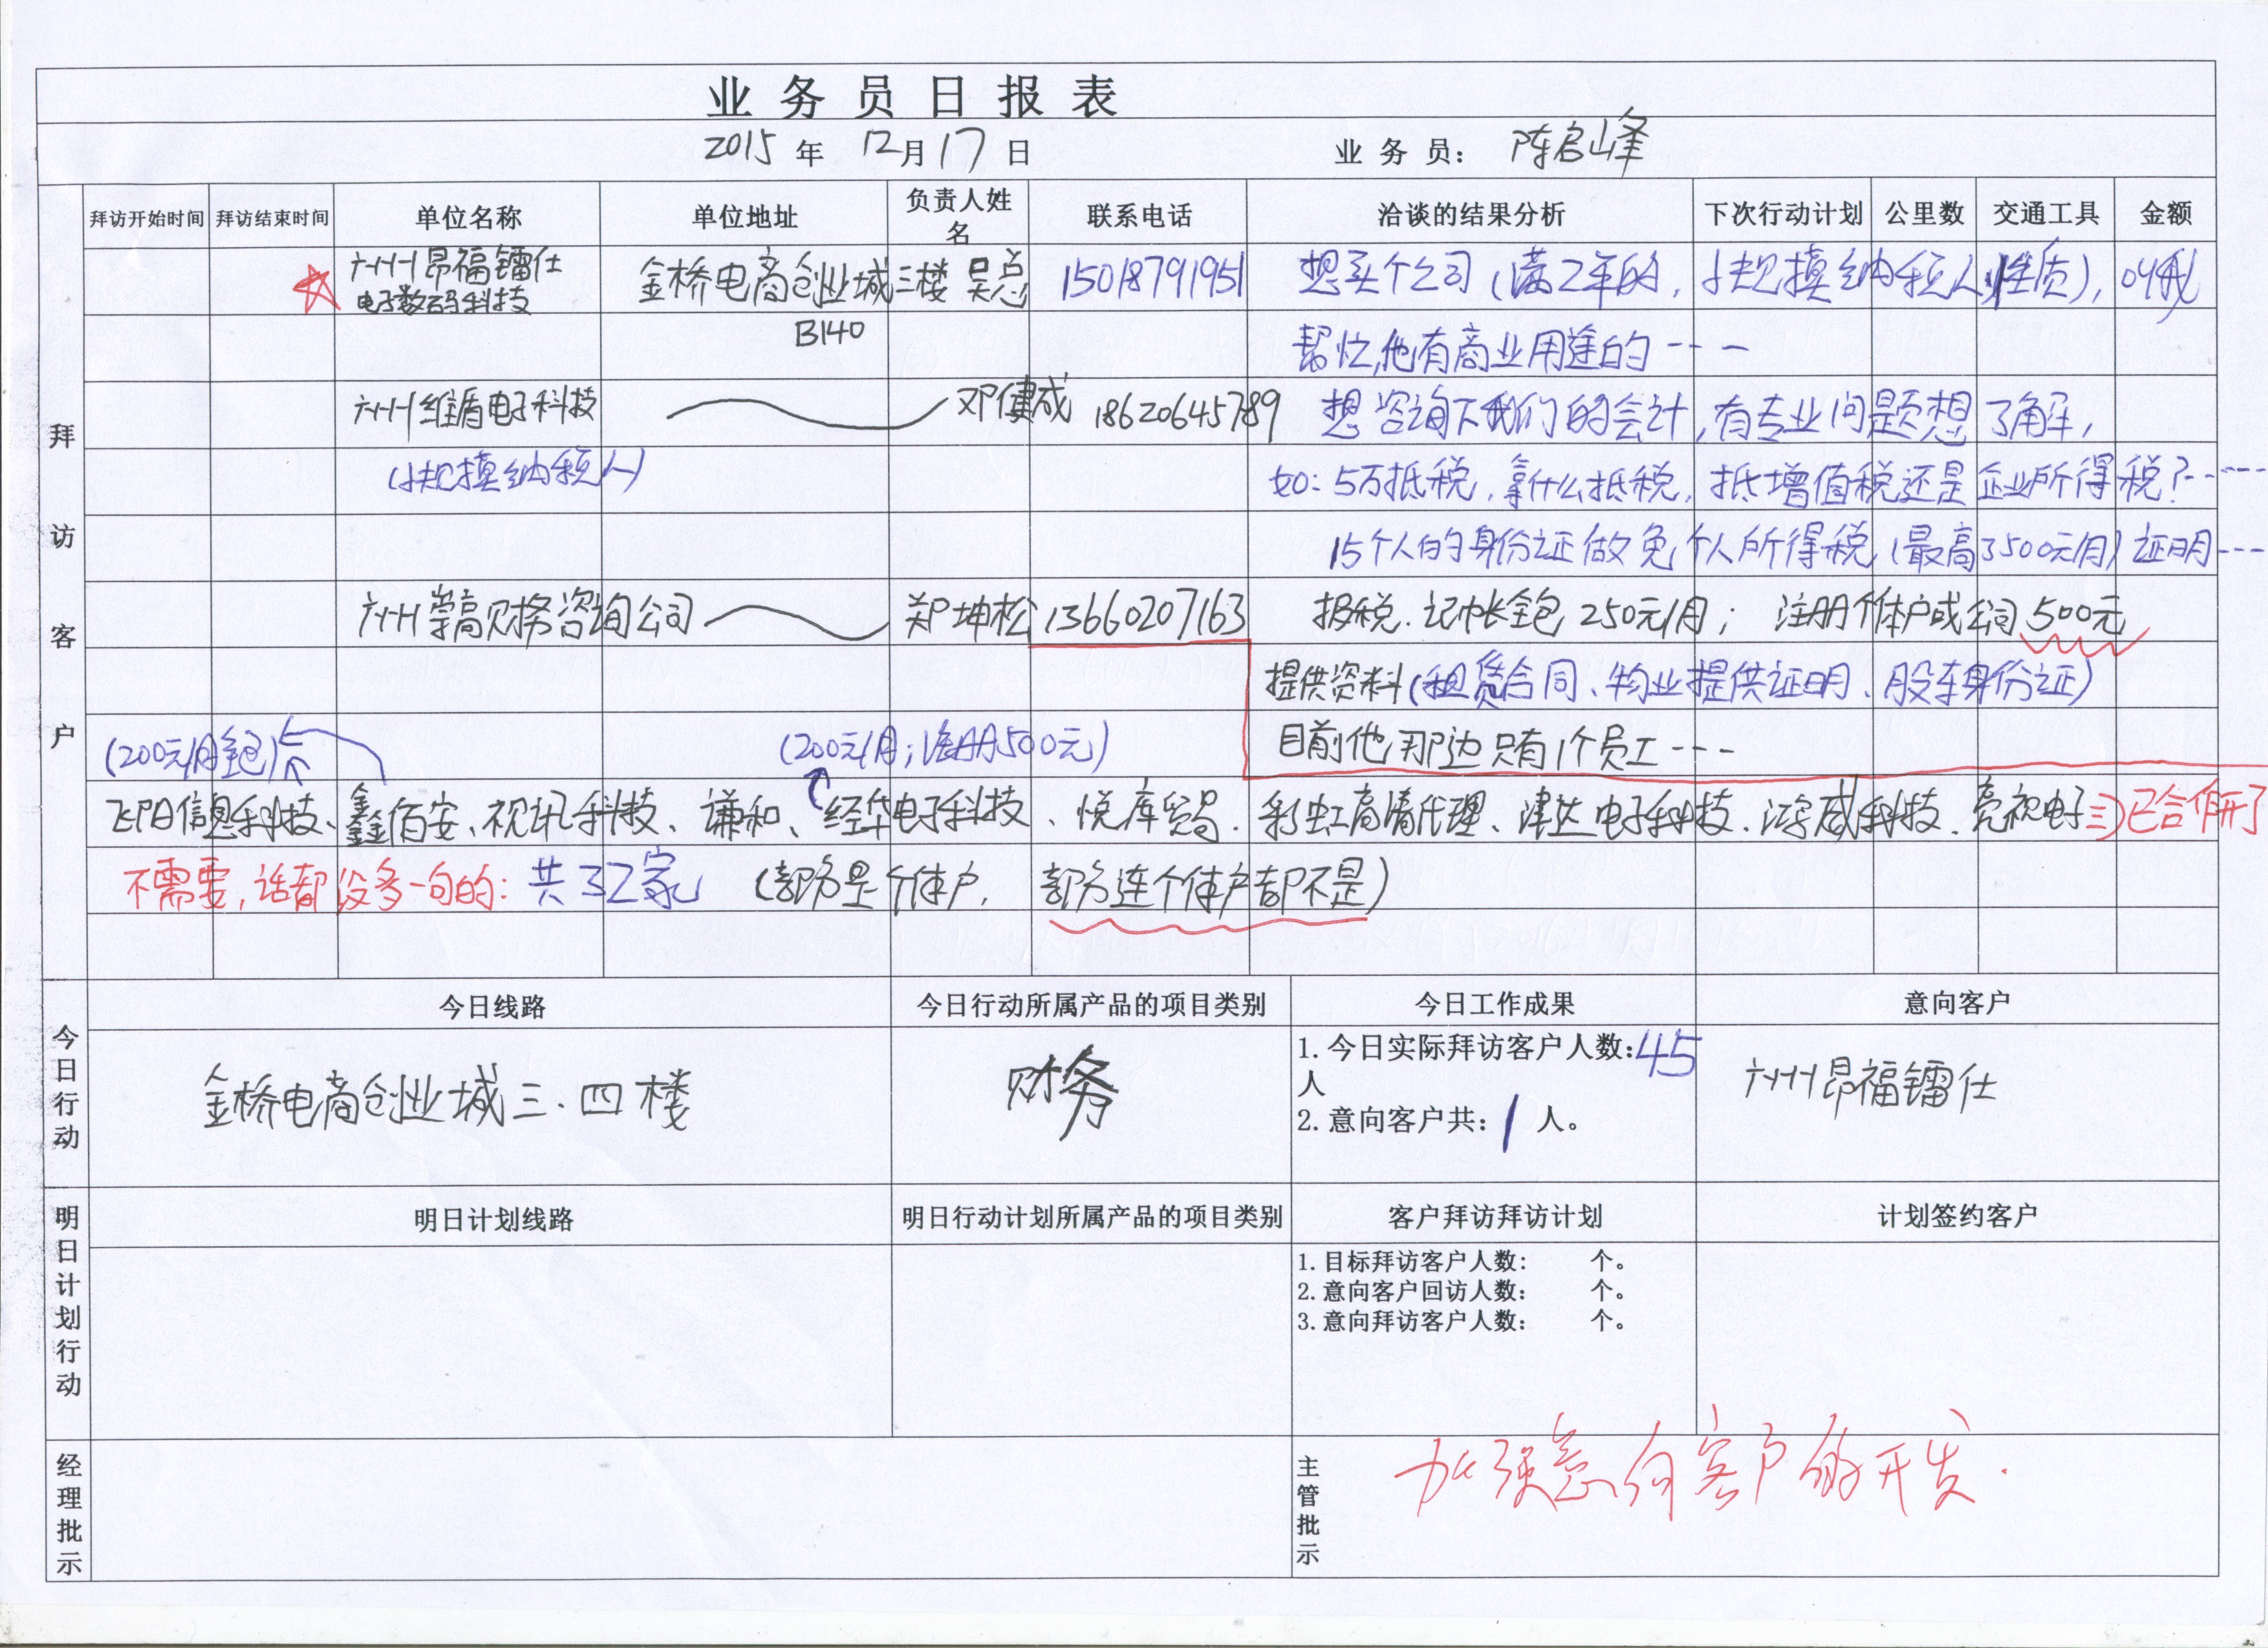 业务员日报表
2015 年 12月17日 业务员: 陈启峰
拜访开始时间 拜访结束时间 单位名称 单位地址 负责人姓名 联系电话 洽谈的结果分析 下次行动计划 公里数 交通工具 金额
拜访客户
广州昂福镭仕 金桥电商创业城三楼 吴总 15018791951 想买个公司(满2年的,小规模纳税人性质),叫我
电子数码科技
B140 帮忙,他有商业用途的---
广州维盾电子科技 邓健成 18620645789 想咨询下我们的会计,有专业问题想了解,
(小规模纳税人) 如:5万抵税,拿什么抵税,抵增值税还是企业所得税?----
15个人的身份证做免个人所得税(最高3500元/月)证明---
广州崇高财务咨询公司 郑坤松 13660207163 报税.记帐全包250元/月; 注册个体户或公司500元
提供资料(租赁合同、物业提供证明、股东身份证)
(200元/月全包) (200元/月;注册500元) 目前他那边只有1个员工---
飞阳信息科技、鑫佰安、视讯科技、谦和、经华电子科技、悦库贸易.彩虹高清代理、津达电子科技.鸿威科技.亮视电子 已合作开了
不需要,话都没多一句的:共32家 (部分是个体户, 部分连个体户都不是)
今日行动
今日线路 今日行动所属产品的项目类别 今日工作成果 意向客户
金桥电商创业城三.四楼 财务 1.今日实际拜访客户人数:45人 广州昂福镭仕
2.意向客户共: 1 人。
明日计划行动
明日计划线路 明日行动计划所属产品的项目类别 客户拜访拜访计划 计划签约客户
1.目标拜访客户人数: 个。
2.意向客户回访人数: 个。
3.意向拜访客户人数: 个。
经理批示 主管批示 加强意向客户的开发.